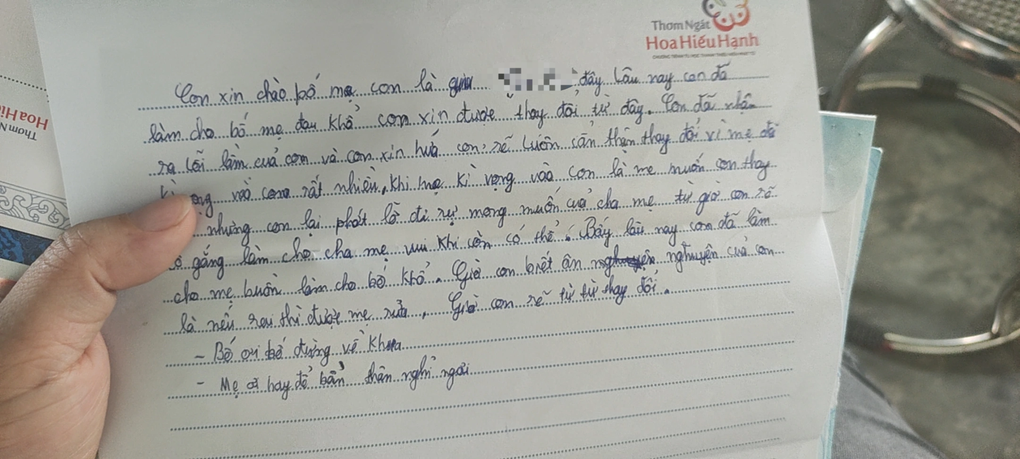 Thơm Ngát
Hoa Hiếu Hạnh
Con xin chào bố mẹ con là đây lâu nay con đã
làm cho bố mẹ đau khổ con xin được thay đổi từ đây. Con đã nhận
ra lỗi lầm của con và con xin hứa con sẽ luôn cẩn thận thay đổi vì mẹ đã
vọng vào con rất nhiều, khi mẹ kì vọng vào con là mẹ muốn con thay
nhưng con lại phớt lờ đi sự mong muốn của cha mẹ từ giờ con sẽ
cố gắng làm cho cha mẹ vui khi còn có thể. Bấy lâu nay con đã làm
cho mẹ buồn làm cho bố khổ. Giờ con biết ân nghuyện của con
là nếu sau thì được mẹ sửa. Giờ con sẽ từ từ thay đổi.
- Bố ơi bố đừng về khuya
- Mẹ ơi hay để bản thân nghỉ ngơi
Thơm
Hoa Hi